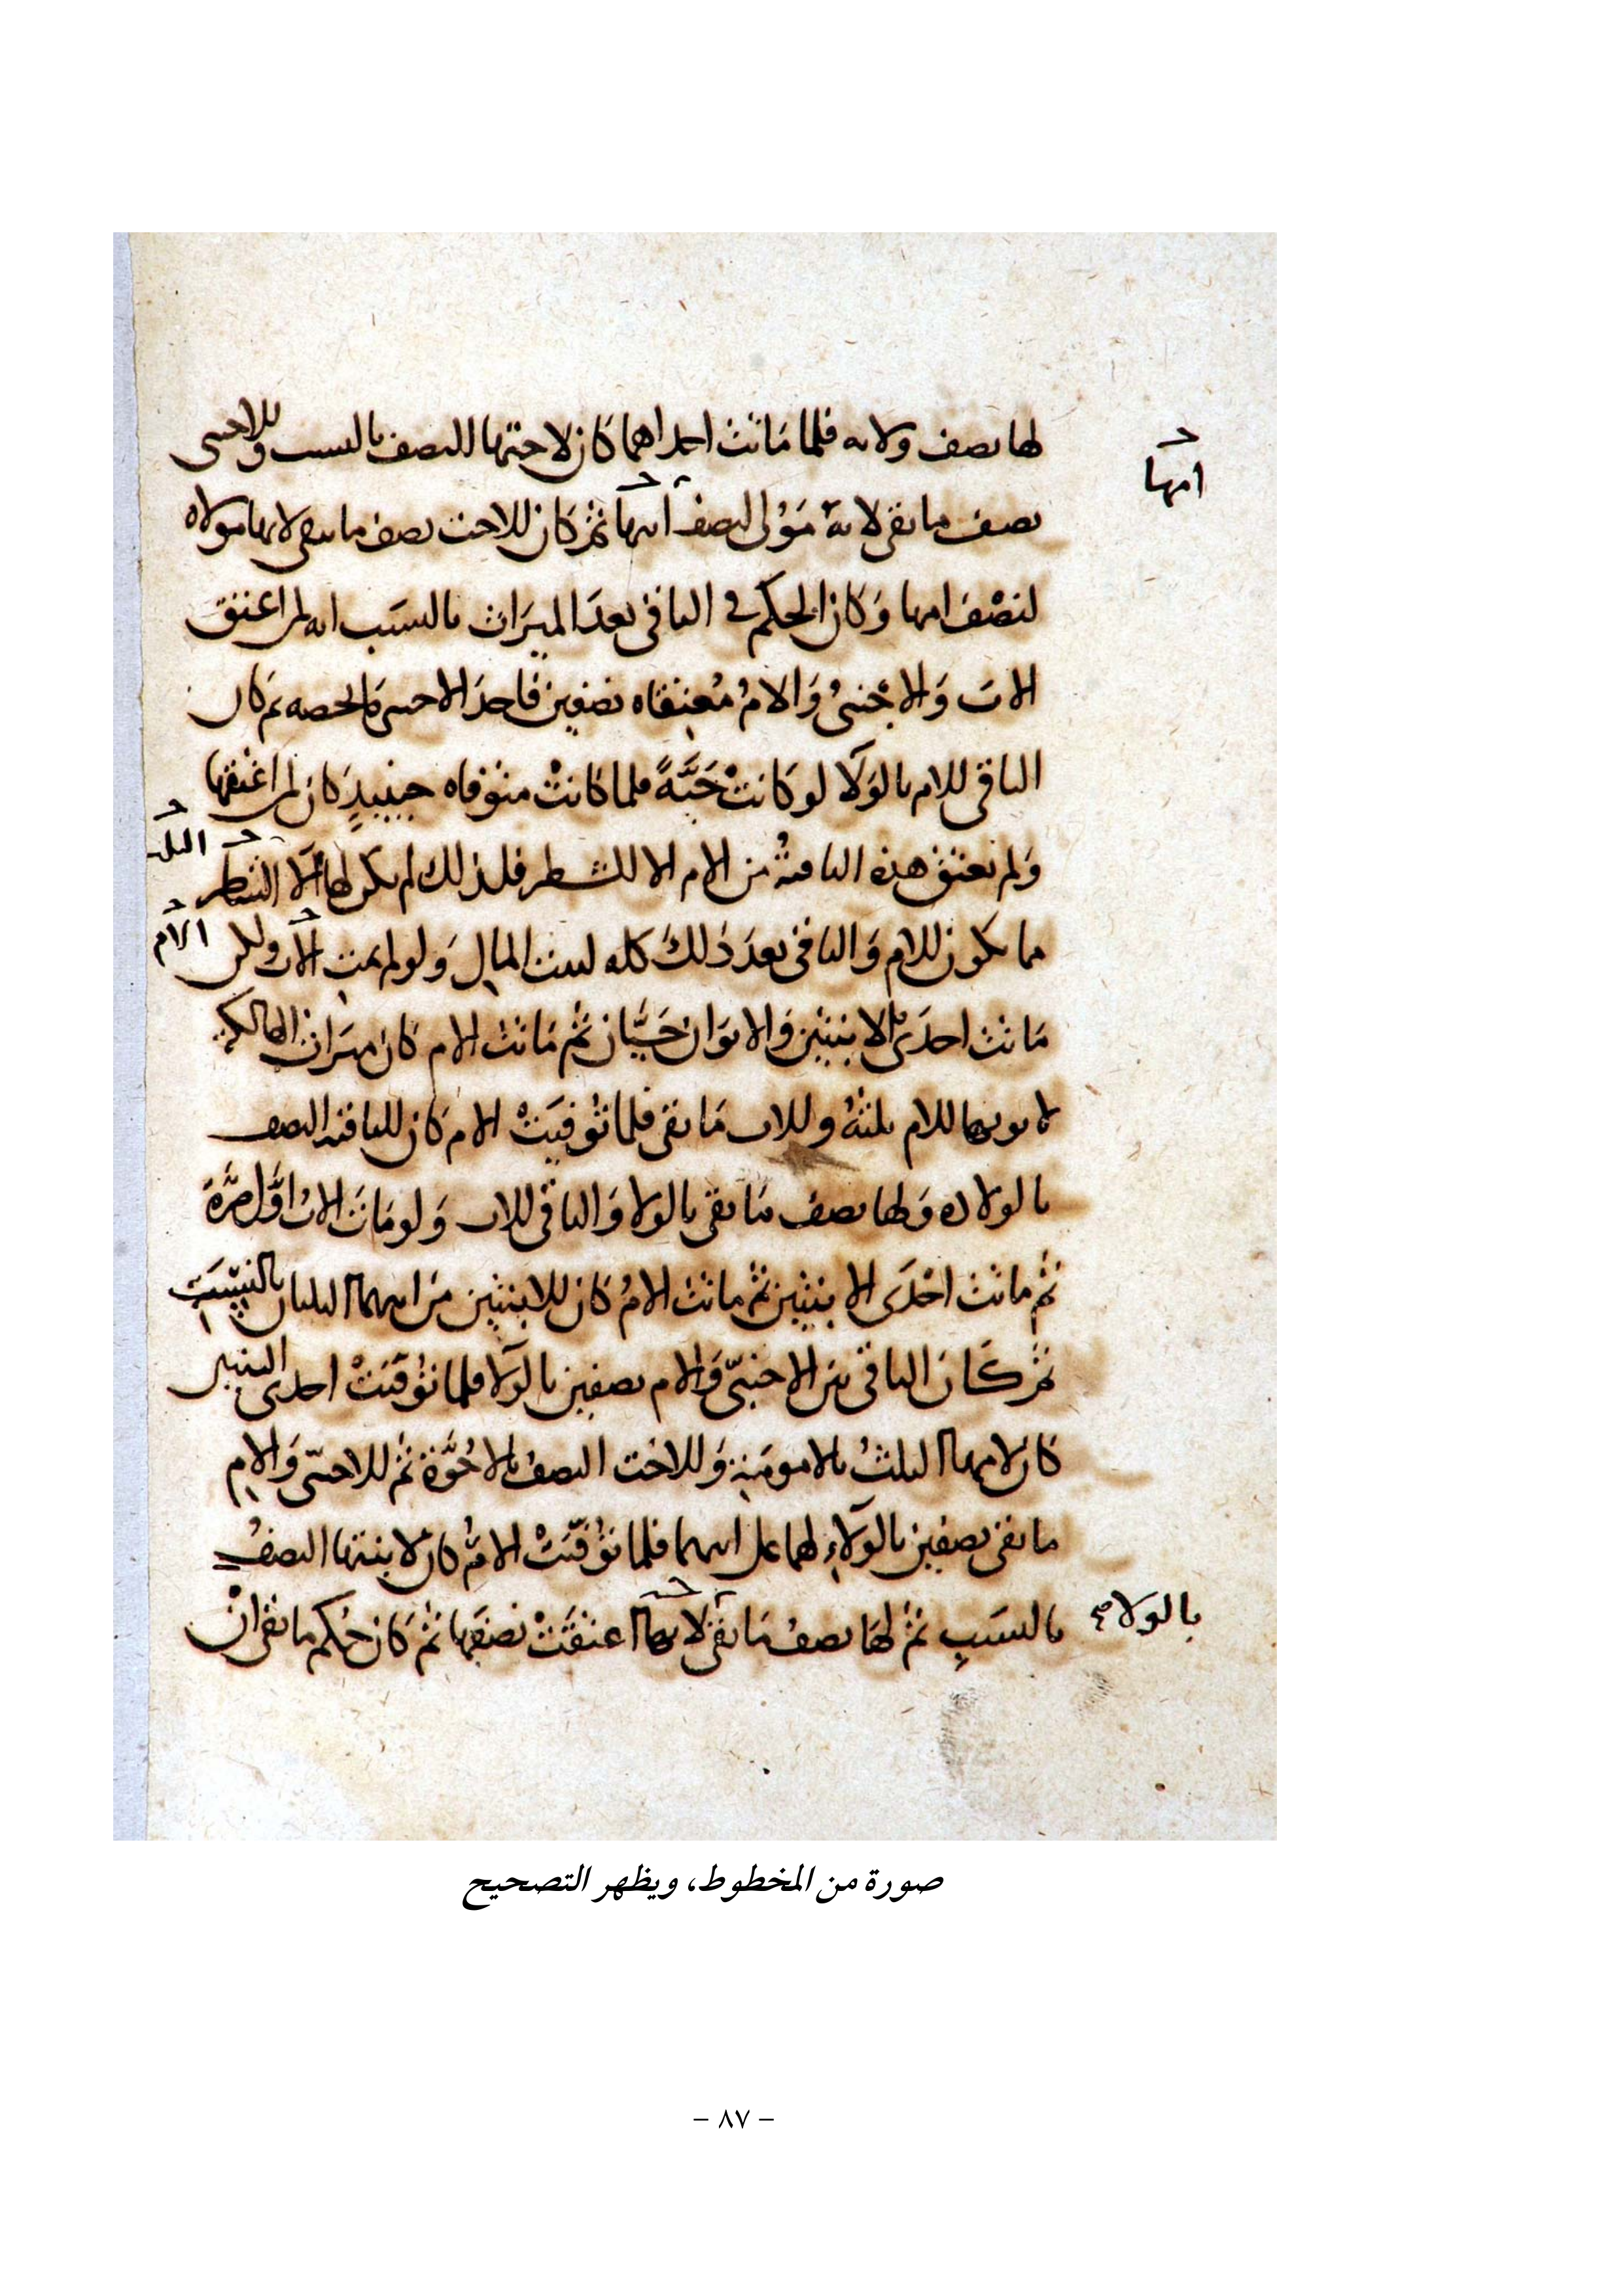 لها نصف ولائه فلما ماتت احداهما كان لاختها النصف بالنسب وللاجنبي
امها
نصف ما بقي لانه مَوْلى لنصف ابيها ثم كان للاخت نصف ما يبقى لانها مولاه
لنصْف امها وَكان الحكم في الباقي بعدَ الميرَاث بالنسَب انه لمن اعتق
الاب وَالاجْنبيُ وَالامُ مُعتقاه نصفين فاخذ الاجنبي بالحصه ثم كان
الباقي للام بالوَلَا لو كانتْ حَيَّةً فلما كانتْ متوفاه حينيذٍ كان لمن اعتقها
وَلم تعتق هذه الباقيةُ من الام الا الشطر فلذلك لم يكن لها الا الشطر
الثلث
مما يكون للام وَالباقي بعدَ ذلكَ كله لبيت المال وَلو لم يمت الاب ولكن
الام
مَاتت احدَى الابنتين وَالابوَان حَيَّان ثم مَاتت الام كان ميرَاث الهالكة
لابويها للام ثلثهُ وللاب مَا بقي فلما توُفيَتْ الام كان للباقيه النصف
بالولاده وَلها نصف مَا بقي بالولا وَالباقي للاب وَلو مَاتَ الابُ اوَّل مرَّة
ثم ماتت احْدَى الابنتين ثم ماتت الامُ كان للابنتين من ابيهما الثلثان بالنسَبِ
ثم كان الباقي بين الاجنبيّ وَالام نصفين بالوَلَا فلما توُفّيَتْ احدى البنتين
كان لامها الثلثُ بالامومَة وَللاخت النصفُ بالاخُوَّة ثم للاجنبيّ وَالام
ما بقي نصفين بالوَلَاءِ لهما على ابيهما فلما توُفّيَتْ الامُّ كان لابنتها النصفُ
بالنسَبِ ثم لهَا نصفُ مَا بقي لانها اعتقَتْ نصفَها ثم كان حُكم ما بقي انْ
بالولا صح
صورة من المخطوط، ويظهر التصحيح
– ٨٧ –